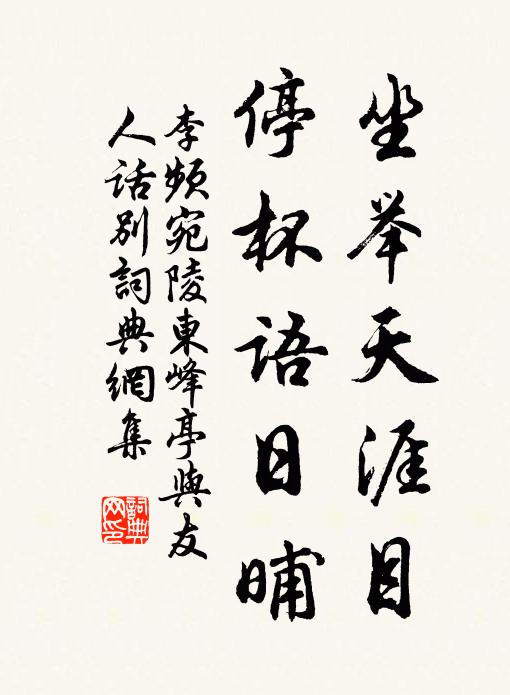 坐举天涯目
停杯語日晡
李頻宛陵東峰亭與友
人话别詞典網集
詞典网印